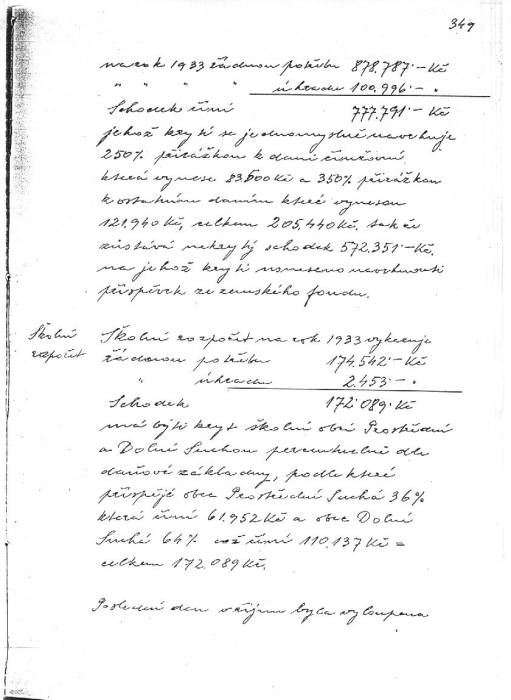 349
na rok 1933 žádanou potřebu 878.787·- Kč
" " " " úhradu 100.996·- "
Schodek činí 777.791·- Kč
jehož krytí se jednomyslně navrhuje
250% přirážkou k dani činžovní
která vynese 83.500 Kč a 350% přirážkou
k ostatním daním které vynesou
121.940 Kč, celkem 205.440 Kč. tak že
zůstává nekrytý schodek 572.351·- Kč.
na jehož krytí usneseno navrhnouti
příspěvek ze zemského fondu.
Školní
rozpočet
Školní rozpočet na rok 1933 vykazuje
žádanou potřebu 174.542·- Kč
" úhradu 2.453·- "
Schodek 172.089 Kč
má býti kryt školní obcí Prostřední
a Dolní Suchou percentuelně dle
daňové základny, podle které
přispěje obec Prostřední Suchá 36%
která činí 61.952 Kč a obec Dolní
Suchá 64% což činí 110.137 Kč =
celkem 172.089 Kč.
Poslední den v říjnu byla vyloupena